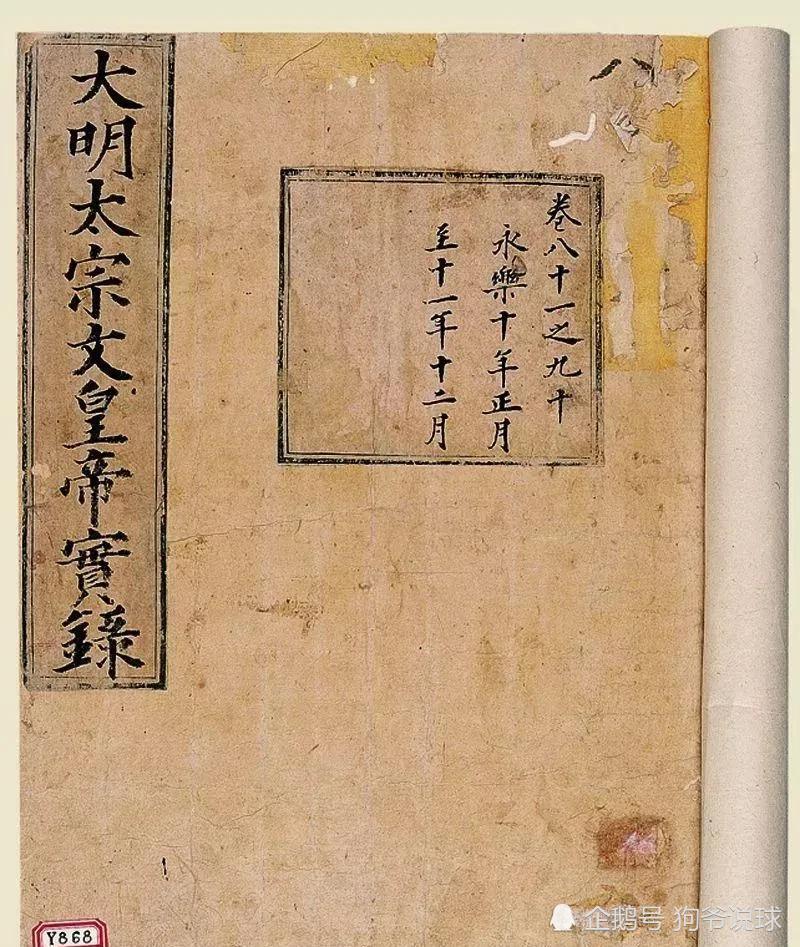 大明太宗文皇帝實錄
卷八十一之九十
永樂十年正月
至十一年十二月
Y868
企鹅号 狗爷说球